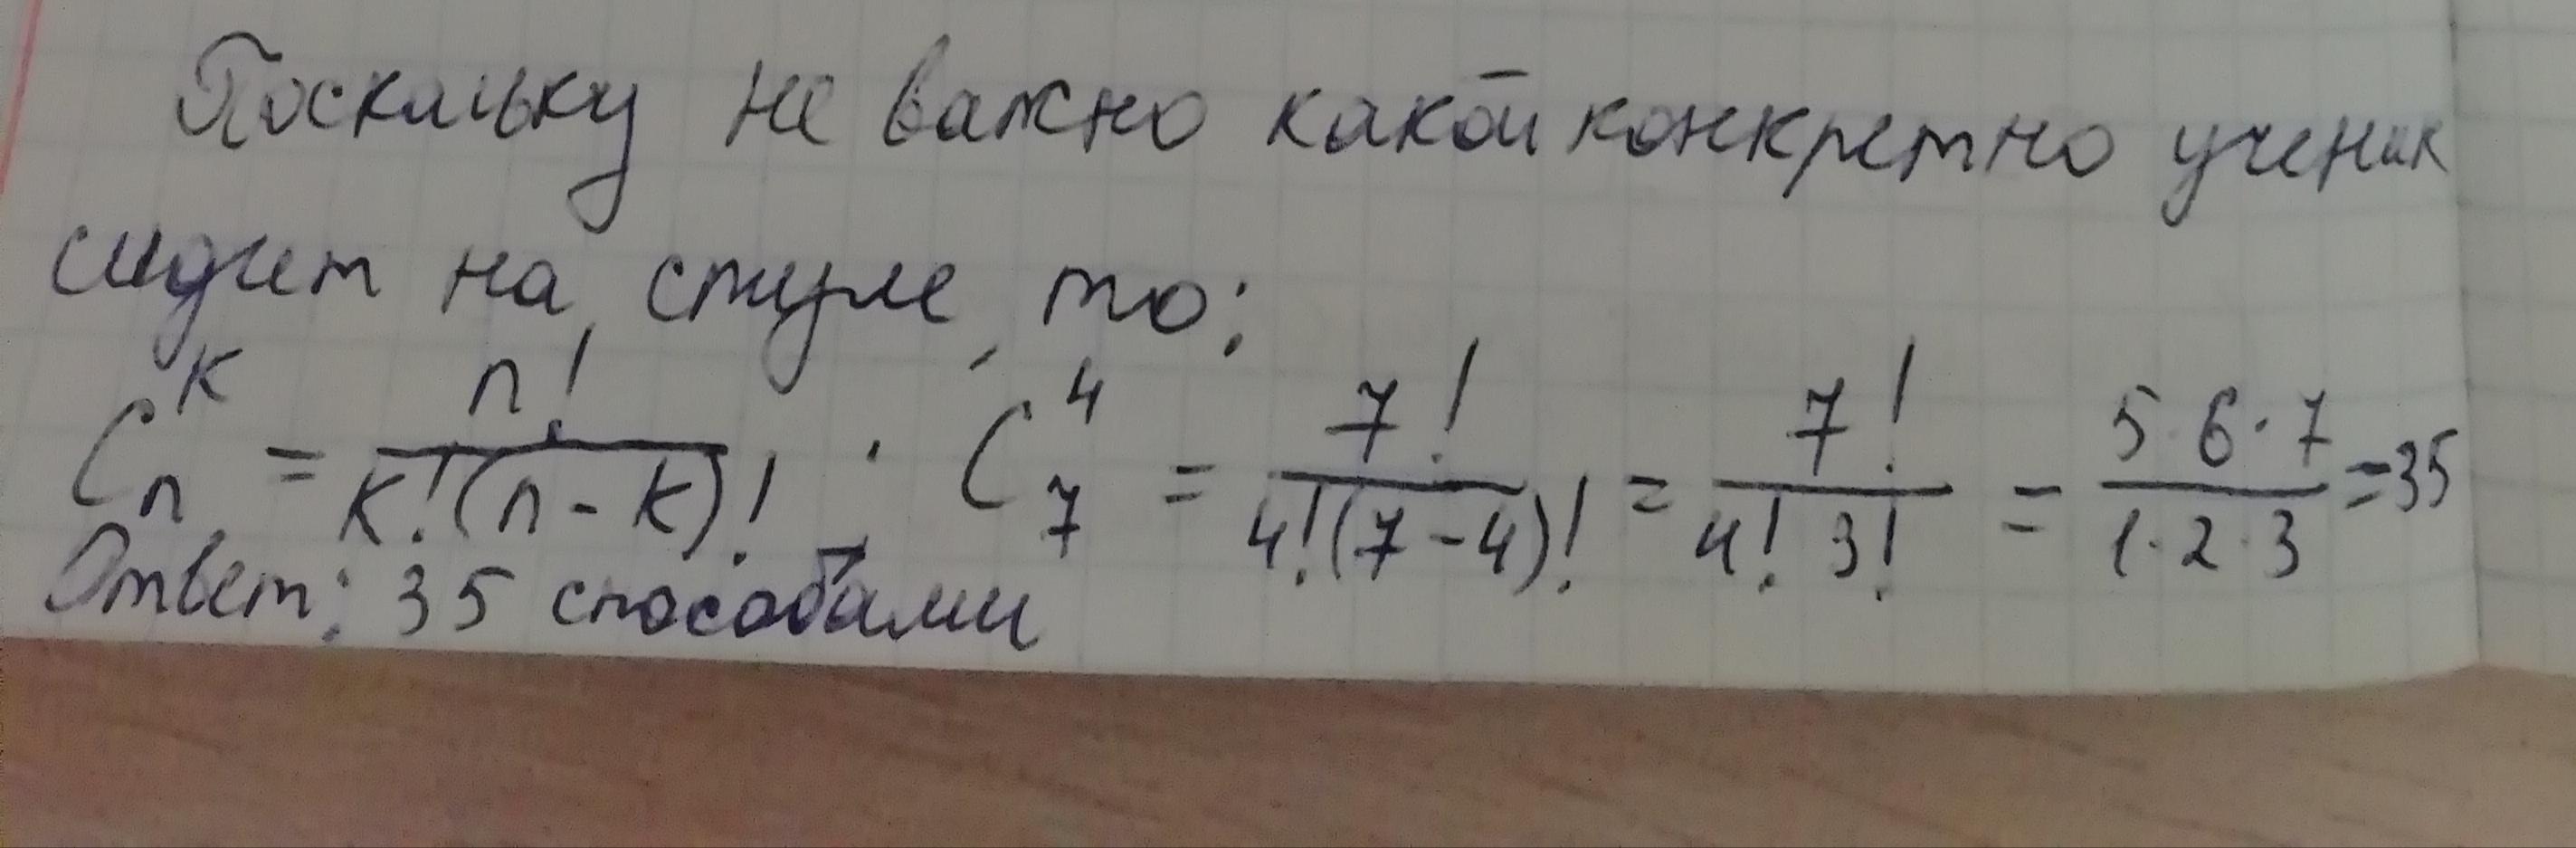 Поскольку не важно какой конкретно ученик
сидит на стуле, то:
C_n^k = n! / k!(n-k)! ; C_7^4 = 7! / 4!(7-4)! = 7! / 4! 3! = 5·6·7 / 1·2·3 = 35
Ответ: 35 способами